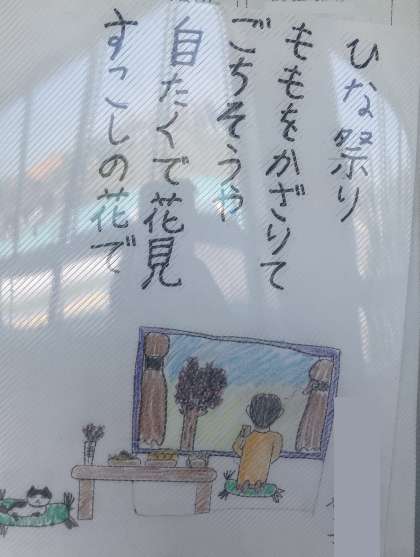 ひな祭り
ももをかざりて
ごちそうや
自たくで花見
すこしの花で